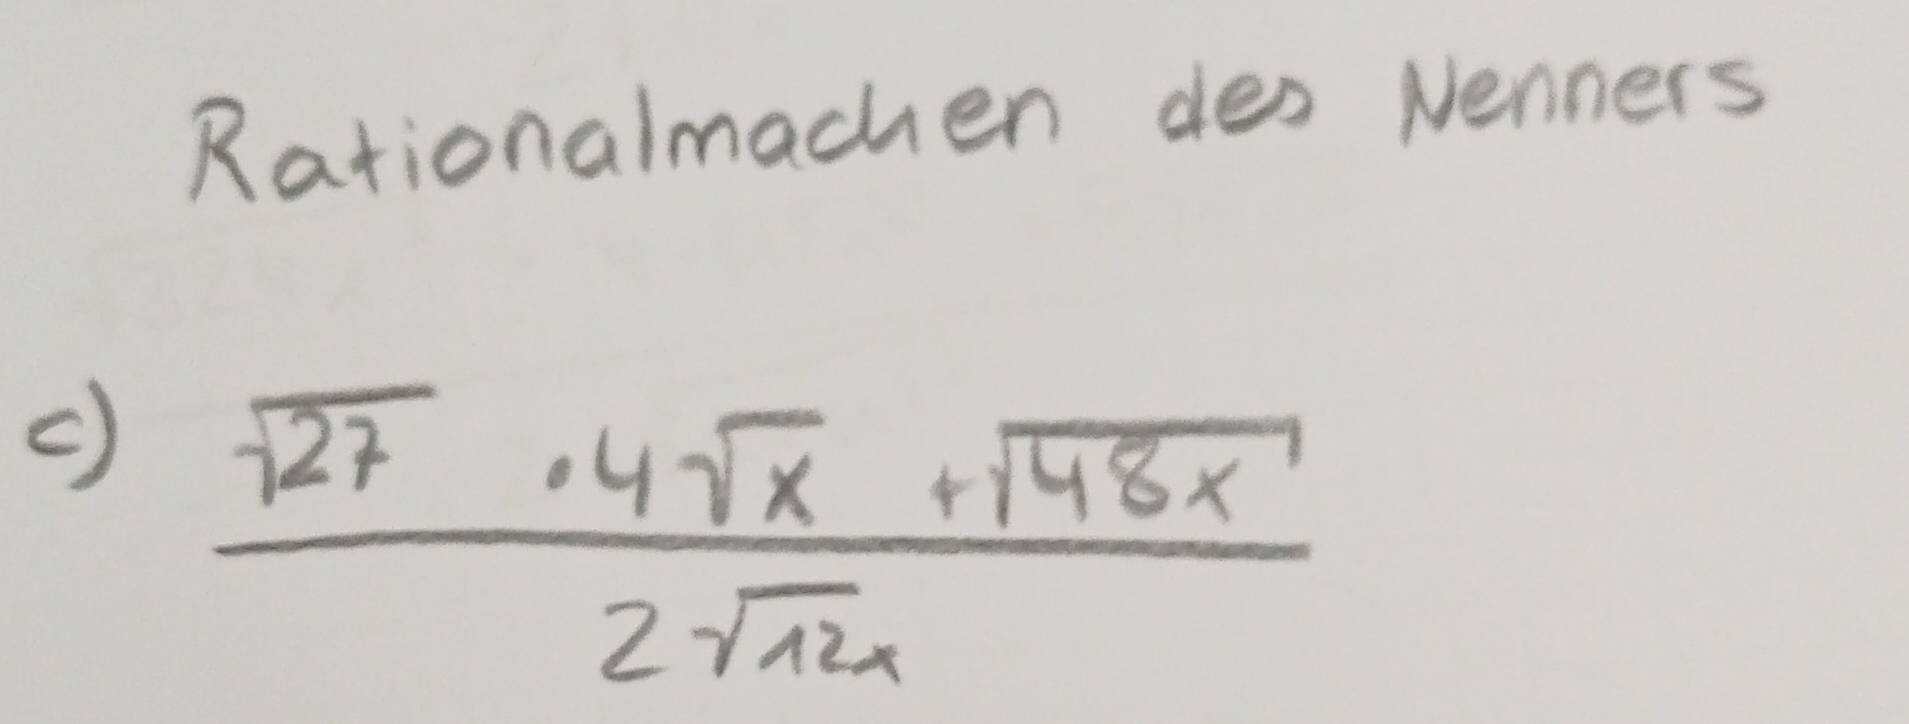 Rationalmachen des Nenners
c) √27 · 4√x + √48x
2√12x